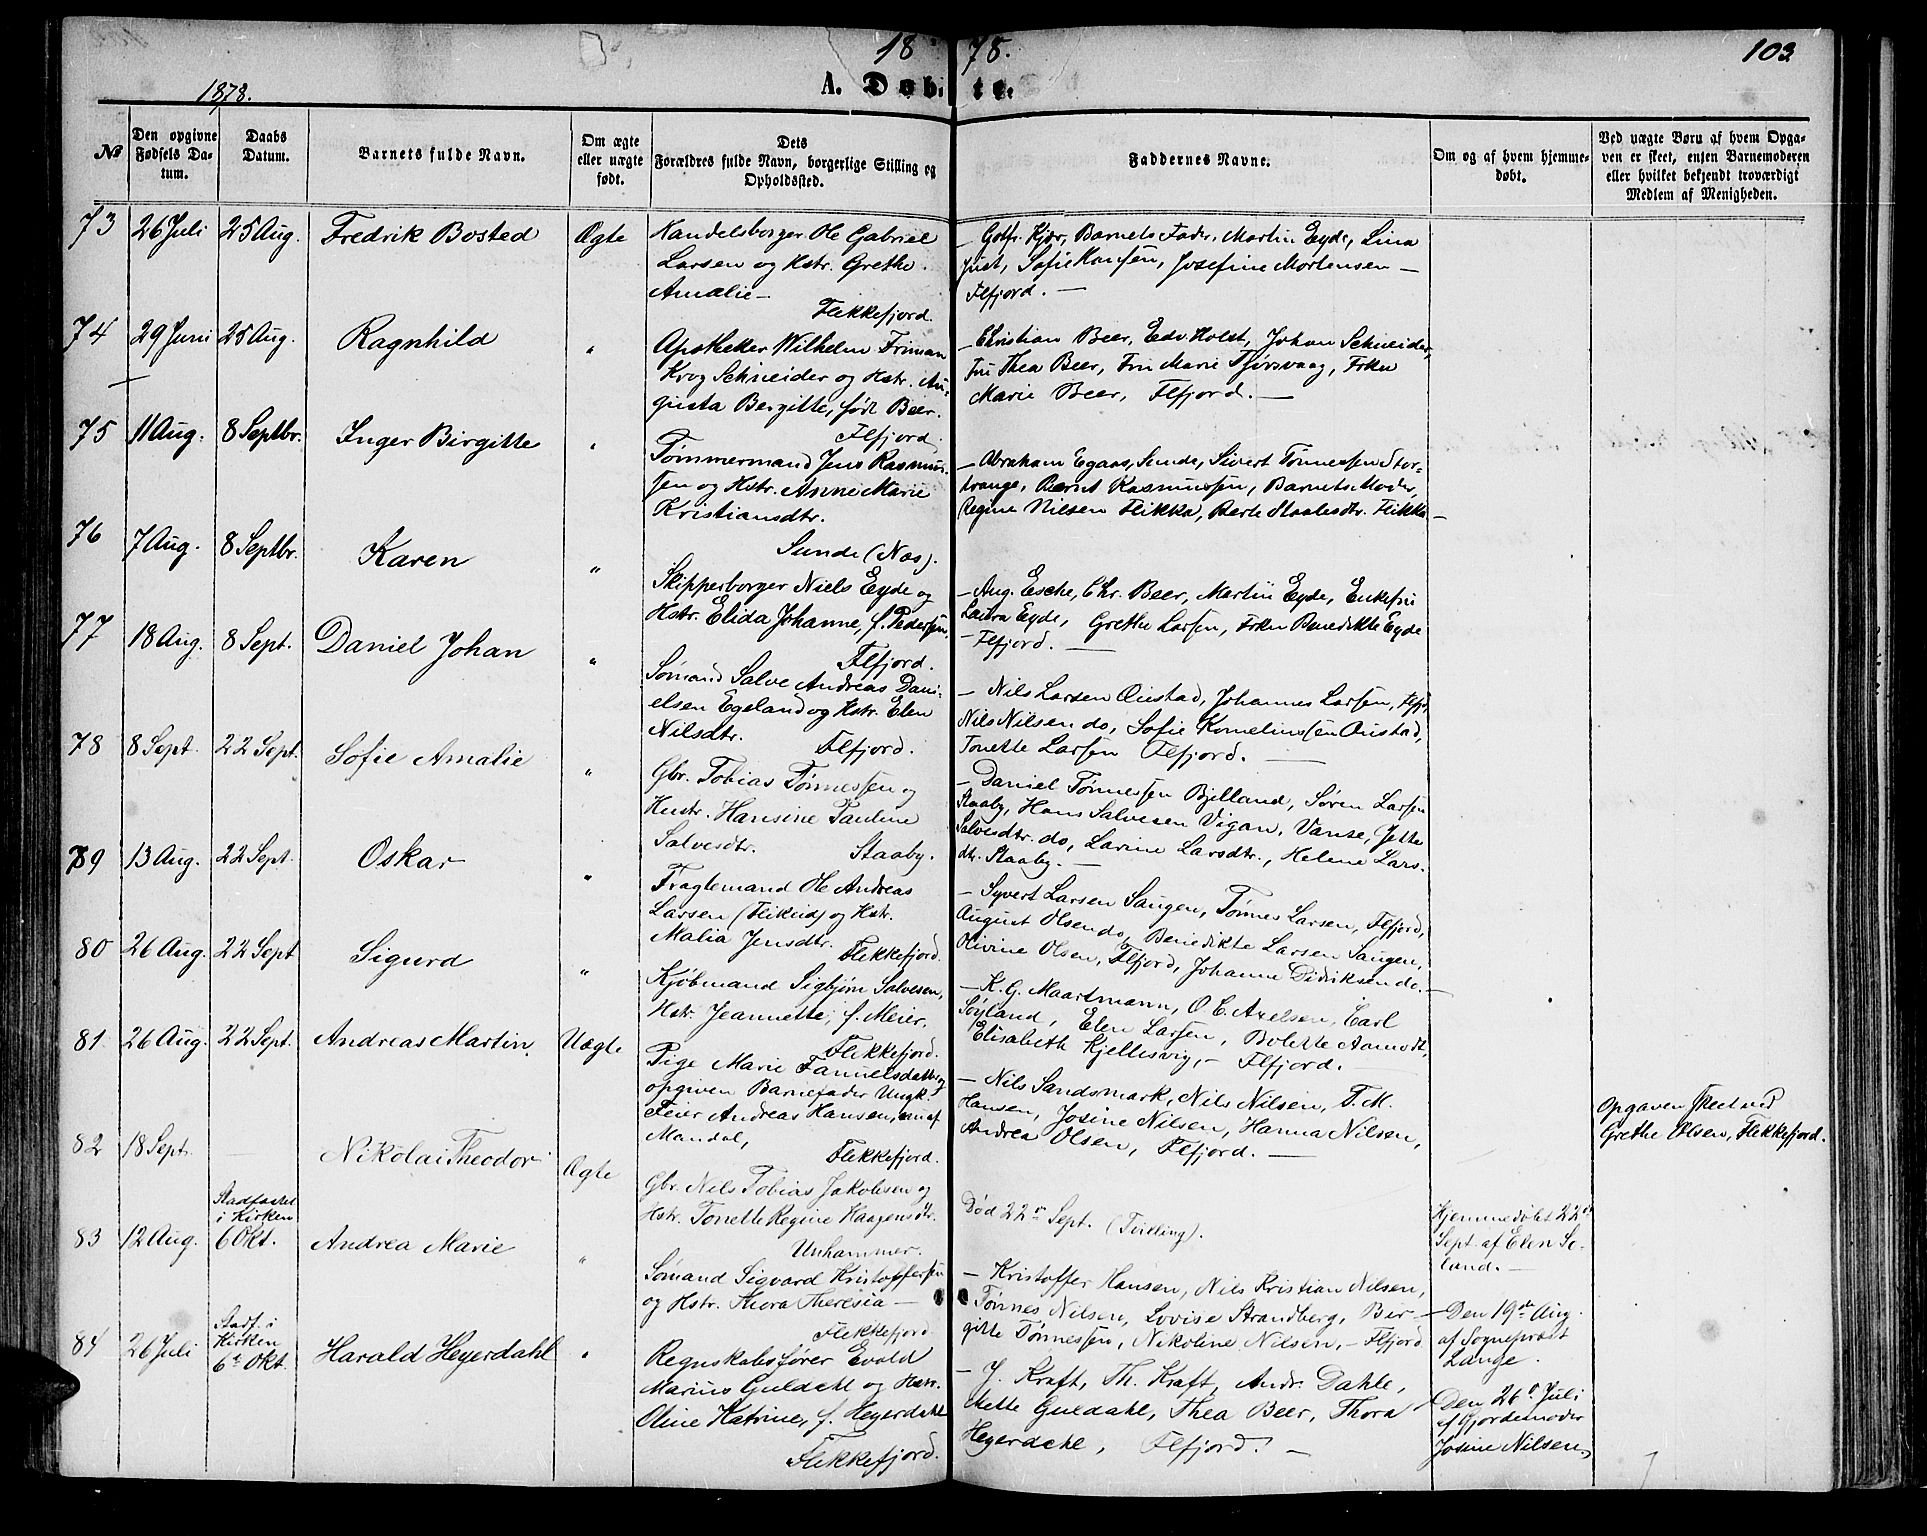 18 78. 103
1878. A. Døbte.
No
Den opgivne Fødsels Datum.
Daabs Datum.
Barnets fulde Navn.
Om ægte eller uægte født.
Dets Forældres fulde Navn, borgerlige Stilling og Opholdssted.
Faddernes Navne.
Om og af hvem hjemmedøbt.
Ved uægte Børn af hvem Opgaven er skeet, enten Barnemoderen eller hvilket bekjendt troværdigt Medlem af Menigheden.
73 26 Juli 25 Aug. Fredrik Bosted Ægte
Handelsborger Ole Gabriel
Larsen og Hstr. Grethe
Amalie —
Flekkefjord.
— Gotfr. Kjær, Barnets Fader, Martin Eyde, Lina
Just, Sofie Hansen, Josefine Mortensen —
Flfjord. —
74 29 Juni 25 Aug. Ragnhild "
Apotheker Wilhelm Friman
Krog Schneider og Hstr. Au-
gusta Bergitte, født Beer.
Flfjord.
— Christian Beer, Edv. Holst, Johan Schneider,
Fru Thea Beer, Fru Marie Tjørsvaag, Frkn
Marie Beer, Flfjord. —
75 11 Aug. 8 Septbr. Inger Birgitte "
Tømmermand Jens Rasmus-
sen og Hstr. Anne Marie
Kristiansdtr.
Sunde (Næs).
— Abraham Egaas, Sunde, Sivert Tønnessen Stor-
drange, Bernt Rasmussen, Barnets Moder,
Regine Nilsen Flikka, Berte Staalesdtr. Flikka —
76 7 Aug. 8 Septbr. Karen "
Skipperborger Niels Eyde og
Hstr. Elida Johanne, f. Pedersen,
Flfjord.
— Aug. Esche, Chr. Beer, Martin Eyde, Enkefru
Laura Eyde, Grethe Larsen, Frkn Benedikte Eyde
— Flfjord. —
77 18 Aug. 8 Sept. Daniel Johan "
Sømand Salve Andreas Dani-
elsen Egeland og Hstr. Elen
Nilsdtr. Flfjord.
— Nils Larsen Øiestad, Johannes Larsen, Flfjd,
Nils Nilsen do, Sofie Korneliussen Øiestad,
Tonette Larsen Flfjord. —
78 8 Sept. 22 Sept. Sofie Amalie "
Gbr. Tobias Tønnessen og
Hustr. Hansine Pauline
Salvesdtr. Staaby.
— Daniel Tønnessen Bjelland, Søren Larsen
Staaby, Hans Salvesen Vigan, Vanse, Jette
Salvesdtr. do, Lavine Larsdtr., Helene Lars-
dtr. Staaby. —
79 13 Aug. 22 Sept. Oskar "
Fragtemand Ole Andreas
Larsen (Flikeid) og Hstr.
Malia Jensdtr. Flekkefjord.
— Syvert Larsen Saugen, Tønnes Larsen, Flfjord,
August Olsen do, Benedikte Larsen Saugen,
Olivine Olsen, Flfjord, Johanne Didriksen do. —
80 26 Aug. 22 Sept Sigurd "
Kjøbmand Sigbjørn Salvesen,
Hstr. Jeannette, f. Meier,
Flekkefjord.
— K. G. Maartmann, O. E. Axelsen, Carl
Søyland, Elen Larsen, Bolette Aamodt,
Elisabeth Kjellesvig, — Flfjord. —
81 26 Aug. 22 Sept. Andreas Martin. Uægte
Pige Marie Fanuelsdatter og
opgiven Barnefader Ungk.
Feier Andreas Hansen, nu af
Mandal, Flekkefjord.
— Nils Sandsmark, Nils Nilsen, T. M.
Hansen, Josine Nilsen, Hanna Nilsen,
Andrea Olsen, Flfjord. —
Opgaven skeet ved
Grethe Olsen, Flekkefjord.
82 18 Sept. Nikolai Theodor Ægte
Gbr. Nils Tobias Jakobsen og
Hstr. Tonette Regine Haagensdtr.
Unhammer.
Død 22de Sept. (Tvilling).
Hjemmedøbt 22de
Sept. af Elen Se-
land. —
83 12 Aug. Stadfæstet
i Kirken
6 Okt. Andrea Marie "
Sømand Sigvard Kristoffersen
og Hstr. Thora Theresia —
Flekkefjord
— Kristoffer Hansen, Nils Kristian Nilsen,
Tønnes Nilsen, Lovise Strandberg, Bir-
gitte Tønnessen, Nikoline Nilsen, — Flfjord
— Den 19de Aug.
af Sogneprest
Lange.
84 26 Juli Stadf. i
Kirken
6te Okt. Harald Heyerdahl "
Regnskabsfører Evald
Marius Guldahl og Hstr.
Oline Katrine, f. Heyerdahl
Flekkefjord.
— J. Kraft, Th. Kraft, Andr. Dahle,
Mette Guldahl, Thea Beer, Thora
Heyerdahl, Flfjord. —
Den 26de Juli
af Gjordemoder
Josine Nilsen.